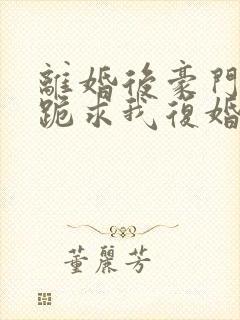 離婚後豪門
跪求我復婚
董麗芳